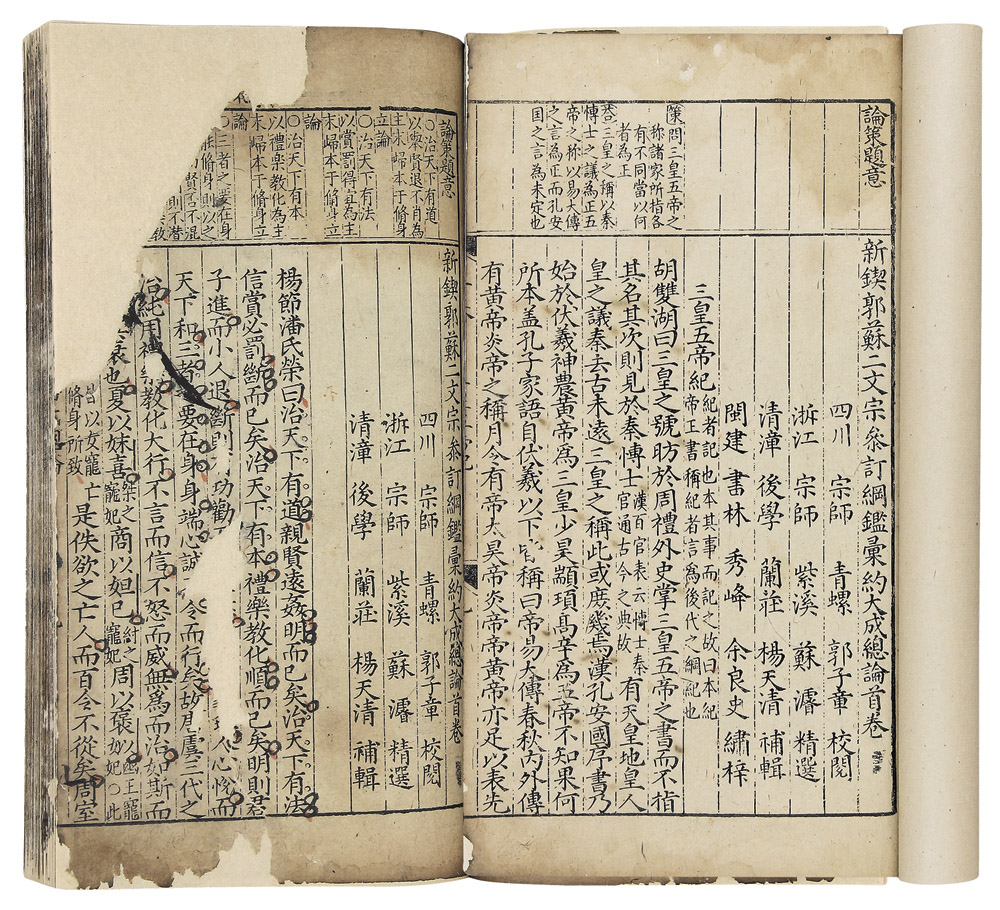 論策題意
策問三皇五帝之
称諸家所指各
有不同當以何
者為正
荅三皇之稱以秦
博士之議為正五
帝之称以易大傳
之言為正而孔安
国之言為未定也
新鍥郭蘇二文宗叅訂綱鑑彙約大成總論首卷
四川 宗師 青螺 郭子章 校閱
浙江 宗師 紫溪 蘇濬 精選
清漳 後學 蘭莊 楊天清 補輯
閩建 書林 秀峰 余良史 繡梓
三皇五帝紀
紀者記也本其事而記之故曰本紀
帝王書稱紀者言為後代之綱紀也
胡雙湖曰三皇之號昉於周禮外史掌三皇五帝之書而不指
其名其次則見於秦博士
漢百官表云博士秦
官通古今之典故
有天皇地皇人
皇之議秦去古未遠三皇之稱此或庶幾焉漢孔安國序書乃
始於伏羲神農黃帝為三皇少昊顓頊高辛為五帝不知果何
所本盖孔子家語自伏羲以下皆稱曰帝易大傳春秋內外傳
有黃帝炎帝之稱月令有帝太昊帝炎帝帝黃帝亦足以表先
論策題意
〇治天下有道
以舉賢退不肖為
主末歸本于脩身
立論
〇治天下有法
以賞罰得宜為主
末歸本于脩身立
論
〇治天下有本
以禮樂教化為主
末歸本于脩身立
論
〇三者之要在身
脩身則以之
賢否不混
則不潜
致
新鍥郭蘇二文宗叅訂綱鑑彙約大成總論首卷
四川 宗師 青螺 郭子章 校閱
浙江 宗師 紫溪 蘇濬 精選
清漳 後學 蘭莊 楊天清 補輯
楊節潘氏榮曰治天下有道親賢遠姦明而已矣治天下有法
信賞必罰斷而已矣治天下有本禮樂教化順而已矣明則君
子進而小人退斷則 功勸 人心悅而
天下和三者 要在身身端心誠 令而行矣故唐虞三代之
治純用禮樂教化大行不言而信不怒而威無為而治如斯而
衰也夏以妹喜
桀之
寵妃
商以妲己
紂之
寵妃
周以褒姒
幽王寵
妃〇此
皆以女寵
脩身所致
亡是佚欲之亡人而百令不從矣周室